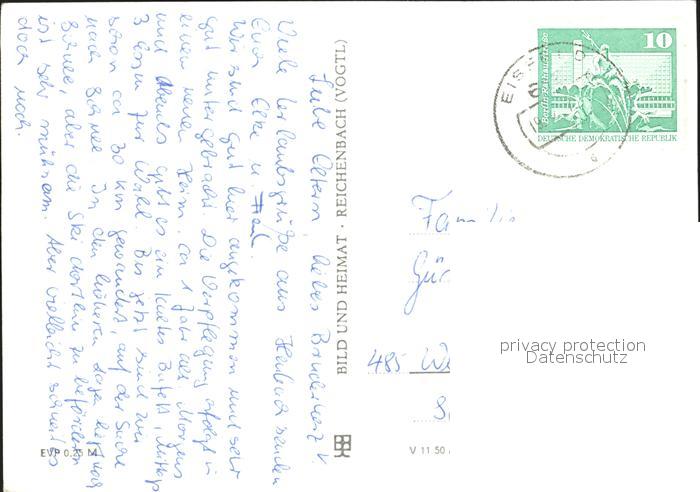 Liebe Eltern, liebes Bruderherz v.
Viele Urlaubsgrüße aus senden
Euch Elke u.
Wir sind gut hier angekommen und sehr
gut untergebracht. Die Verpflegung erfolgt in
einem neuen Heim, ca 1 Jahr alt. Morgens
und Abends gibt es ein kaltes Bufett, Mittags
3 Essen zur Wahl. Bis jetzt sind wir
schon ca 30 km gewandert, auf der Suche
nach Schnee. In den höheren Lagen liegt noch
Schnee, aber die Ski dorthin zu befördern
ist sehr mühsam. Aber vielleicht schneit es
doch noch.
BILD UND HEIMAT · REICHENBACH (VOGTL)
EVP 0,25 M
V 11 50
10
DEUTSCHE DEMOKRATISCHE REPUBLIK
Familie
485 We
privacy protection
Datenschutz